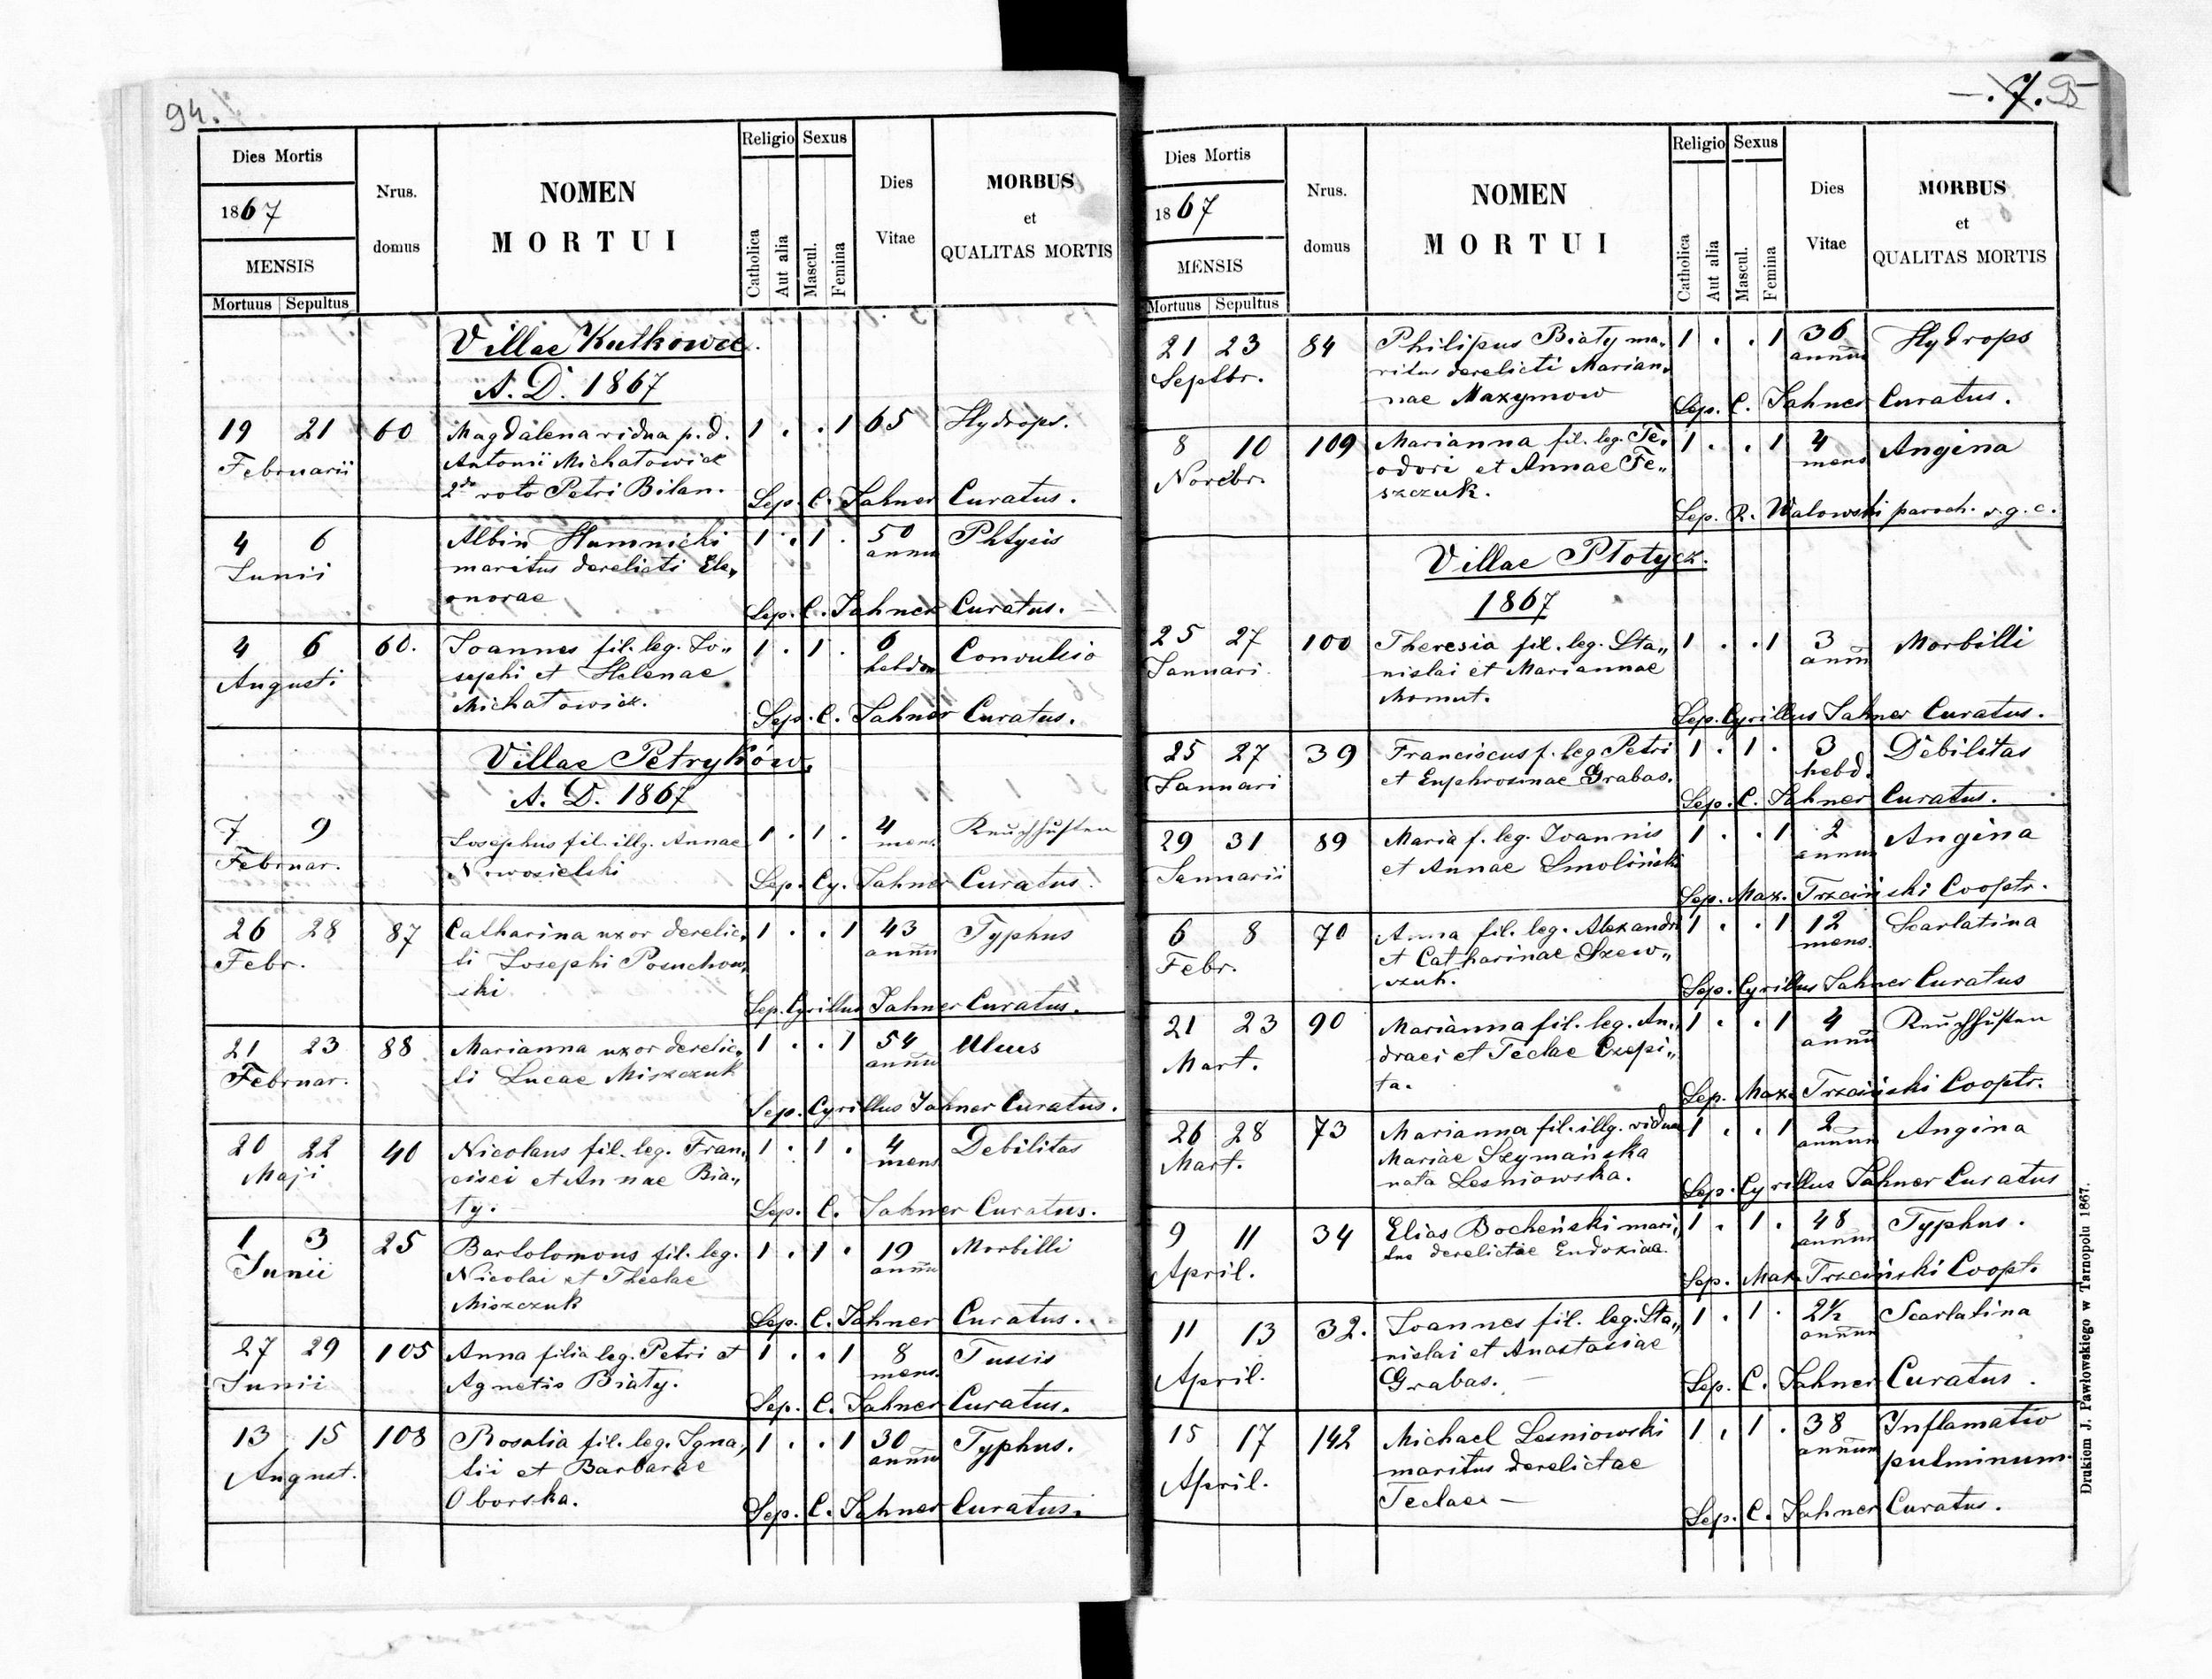 94.
Dies Mortis
1867
MENSIS
Mortuus Sepultus
Nrus.
domus
NOMEN
MORTUI
Religio Sexus
Catholica
Aut alia
Mascul.
Femina
Dies
Vitae
MORBUS
et
QUALITAS MORTIS
Villae Kutkowce.
A. D. 1867
19 21 60 Magdalena vidua p. d. 1 . . 1 65 Hydrops.
Februarii Antonii Michałowicz
2do voto Petri Bilan. Sep. C. Jahner Curatus.
4 6 Albin Humnicki 1 . 1 . 50 Phtysis
Junii maritus derelicti Ele„ annu
onorae Sep. C. Jahner Curatus.
4 6 60. Joannes fil. leg. Jo„ 1 . 1 . 6 Convulsio
Augusti sephi et Helenae hebdom
Michałowicz. Sep. C. Jahner Curatus.
Villae Petryków.
A. D. 1867
7 9 Josephus fil. illg. Annae 1 . 1 . 4 Keuchhusten
Februar. Nowosielski mens.
Sep. Cy. Jahner Curatus.
26 28 87 Catharina uxor derelic„ 1 . . 1 43 Typhus
Febr. ti Josephi Posuchow„ annu
ski Sep. Cyrillus Jahner Curatus.
21 23 88 Marianna uxor derelic„ 1 . . 1 54 Ulcus
Februar. ti Lucae Miszczuk annu
Sep. Cyrillus Jahner Curatus.
20 22 40 Nicolaus fil. leg. Fran„ 1 . 1 . 4 Debilitas
Maji cisci et Annae Bia„ mens
ły. Sep. C. Jahner Curatus.
1 3 25 Bartolomeus fil. leg. 1 . 1 . 19 Morbilli
Junii Nicolai et Theclae annu
Miszczuk Sep. C. Jahner Curatus.
27 29 105 Anna filia leg. Petri et 1 . . 1 8 Tussis
Junii Agnetis Biały. mens.
Sep. C. Jahner Curatus.
13 15 108 Rosalia fil. leg. Igna„ 1 . . 1 30 Typhus.
August. tii et Barbarae annu
Oborska. Sep. C. Jahner Curatus.
7.
Dies Mortis
1867
MENSIS
Mortuus Sepultus
Nrus.
domus
NOMEN
MORTUI
Religio Sexus
Catholica
Aut alia
Mascul.
Femina
Dies
Vitae
MORBUS
et
QUALITAS MORTIS
21 23 84 Philipus Biały ma„ 1 . . 1 36 Hydrops
Septbr. ritus derelicti Marian„ annu
nae Maxymow Sep. C. Jahner Curatus.
8 10 109 Marianna fil. leg. Te„ 1 . . 1 4 Angina
Novebr. odori et Annae Fe„ mens
szczuk. Sep. R. Walowski paroch. r. g. c.
Villae Płotycz.
1867
25 27 100 Theresia fil. leg. Sta„ 1 . . 1 3 Morbilli
Januari nislai et Mariannae anu
Momut. Sep. Cyrillus Jahner Curatus.
25 27 39 Franciscus f. leg Petri 1 . 1 . 3 Debilitas
Januari et Euphrosinae Grabas. hebd.
Sep. C. Jahner Curatus.
29 31 89 Maria f. leg. Joannis 1 . . 1 2 Angina
Januarii et Annae Smoliński annu
Sep. Max. Trzciński Cooptr.
6 8 70 Anna fil. leg. Alexandri 1 . . 1 12 Scarlatina
Febr. et Catharinae Szew„ mens.
czuk. Sep. Cyrillus Jahner Curatus
21 23 90 Marianna fil. leg. An„ 1 . . 1 4 Keuchhusten
Mart. draei et Teclae Czepi„ annu
ta. Sep. Max Trzciński Cooptr.
26 28 73 Marianna fil. illg. vidua 1 . . 1 2 Angina
Mart. Mariae Szymańska annuu
nata Lesniowska. Sep. Cyrillus Jahner Curatus
9 11 34 Elias Bocheński mari„ 1 . 1 . 48 Typhus.
April. tus derelictae Eudoxiae. annuu
Sep. Max Trzciński Coopt.
11 13 32. Joannes fil. leg. Sta„ 1 . 1 . 2½ Scarlatina
April. nislai et Anastasiae annuu
Grabas. — Sep. C. Jahner Curatus.
15 17 142 Michael Lesniowski 1 . 1 . 38 Inflamatio
April. maritus derelictae annuu pulminum.
Teclae — Sep. C. Jahner Curatus.
Drukiem J. Pawłowskiego w Tarnopolu 1867.